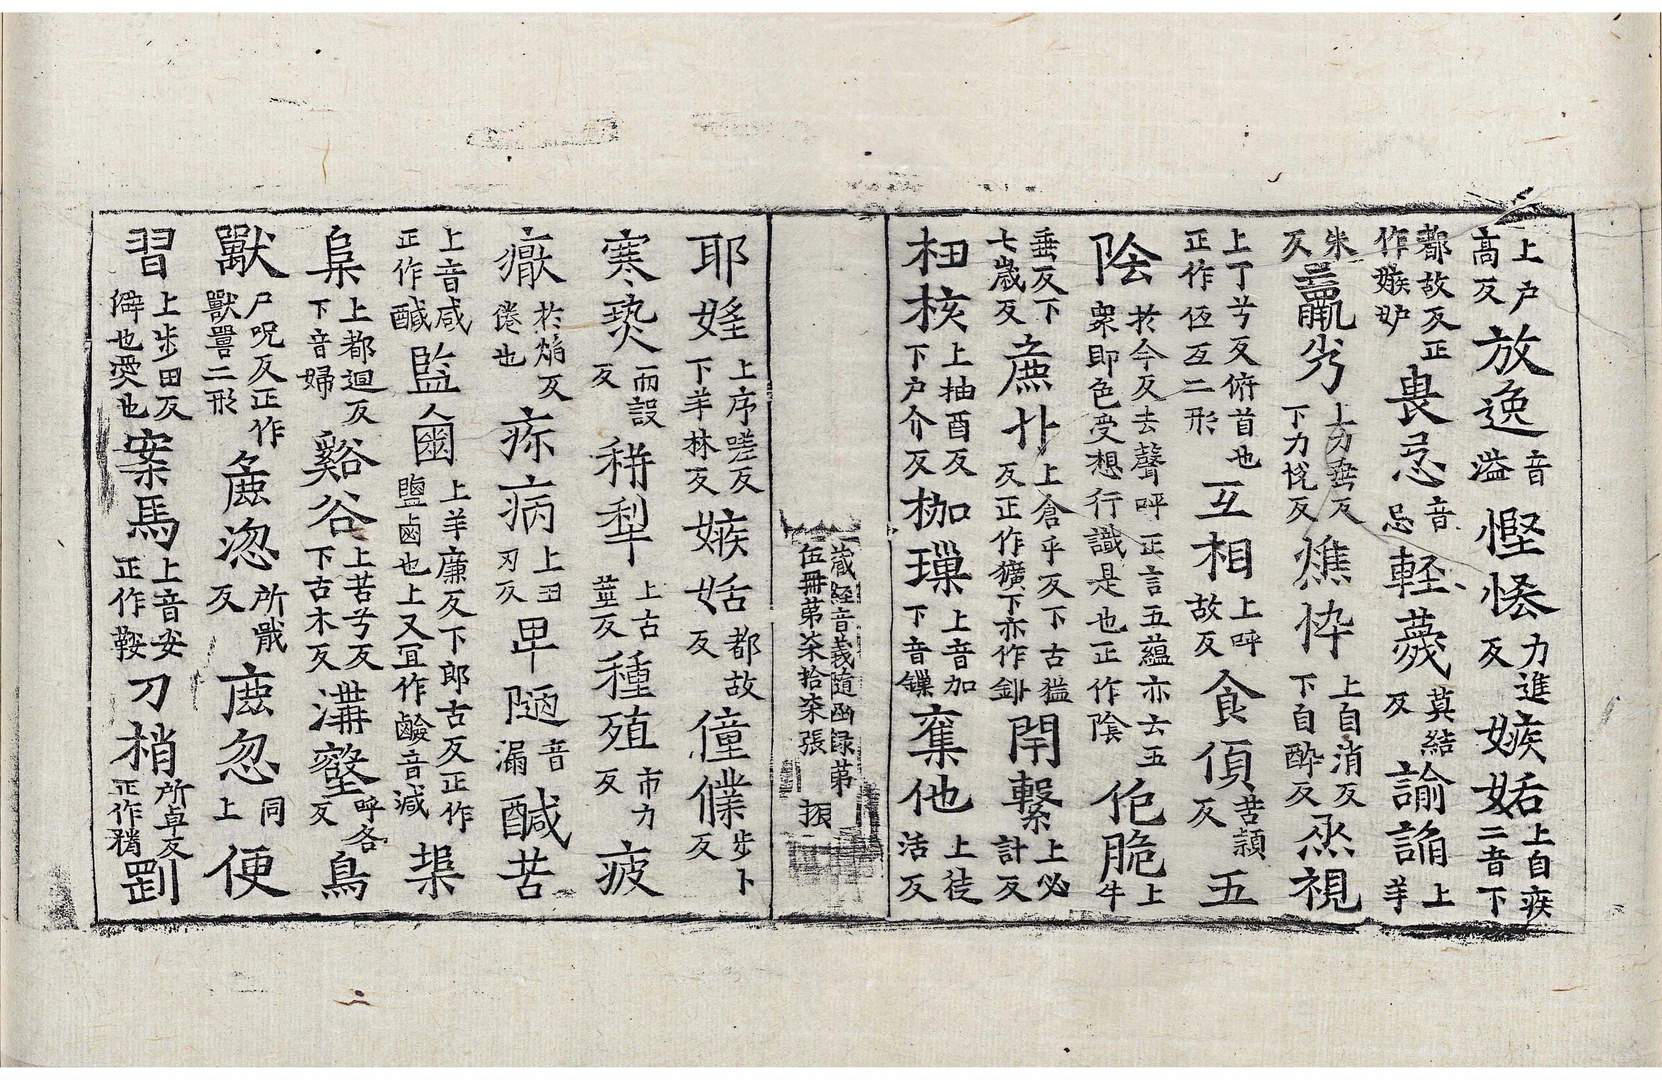 上户高反放逸溢音慳悋力進反嫉妬上自疾二音下
都故反正作嫉妒畏忌音忌軽薎莫結反諭諂上羊
朱反羸劣上力垂反下力悦反燋忰上自消反下自酔反烝視
上丁兮反俯首也正作仾互二形互相上呼故反食傾苦頴反五
陰於今反去聲呼正言五蘊亦云五衆即色受想行識是也正作隂佹脆上牛
垂反下七歳反麁卝上倉乎反下古猛反正作獷下亦作釙閈繫上必計反
杻核上抽酉反下户介反枷璅上音加下音鏁奪他上徒活反
蔵経音義随函録第伍冊第柒拾柒張 振
耶婬上序嗟反下羊林反嫉妬都故反僮僕步卜反
寒爇而設反稱犁上古莖反種殖市力反疲
㿑於焰反倦也疢病上丑刃反卑陋音漏鹹苦
上音咸正作醎監鹵上羊廉反下郎古反正作鹽鹵也上又冝作鹼音減埠
阜上都廻反下音婦谿谷上苦兮反下古木反溝壑呼各反鳥
獸尸呪反正作獸嘼二形麁澁所戢反麁忽同上便
習上步田反僻也愛也案馬上音安正作鞍刀梢所卓反正作矟剅